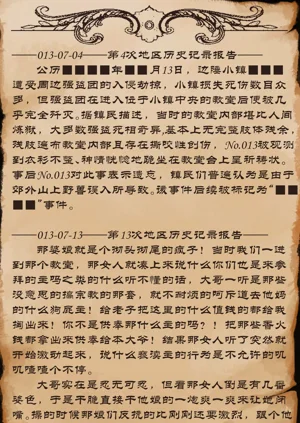 ——013-07-04——第4次地区历史记录报告——
公历■■■■年■■月13日,边陲小镇■■■
遭受周边强盗团的入侵劫掠,小镇损失死伤数目众
多,但强盗团在进入位于小镇中央的教堂后便被几
乎完全歼灭。据镇民描述,当时的教堂内部堪比人间
炼狱,大多数强盗死相奇异,基本上无完整肢体残余,
残肢遍布教堂内部且存在撕咬性创伤,No.013被观测
到衣衫不整、神情恍惚地跪坐在教堂台上呈祈祷状。
事后No.013对此事表示遗忘,镇民们普遍认为是由于
郊外山上野兽误入所导致。该事件后续被标记为“■■
■■”事件。
——013-07-13——第13次地区历史记录报告——
那婆娘就是个彻头彻尾的疯子!当时我们一进
到那个教堂,那女人就凑上来说什么你们也是来参
拜的主吗之类的什么听不懂的话,大哥一听是那些
没意思的搞宗教的那套,就不耐烦的呵斥道去他妈
的什么狗屁主!给老子把这里的什么值钱的都给我
掏出来!你不是供奉那什么主的吗?!把那些香火
钱都拿出来供奉给本大爷!结果那女人听了突然就
开始激动起来,说什么亵渎主的行为是不允许的叽
叽喳喳个不停。
大哥实在是忍无可忍,但看那女人倒是有几番
姿色,于是干脆直接干他娘的一炮爽一爽来让她闭
嘴。操的时候那娘们反抗的比刚刚还要激烈,跟个他